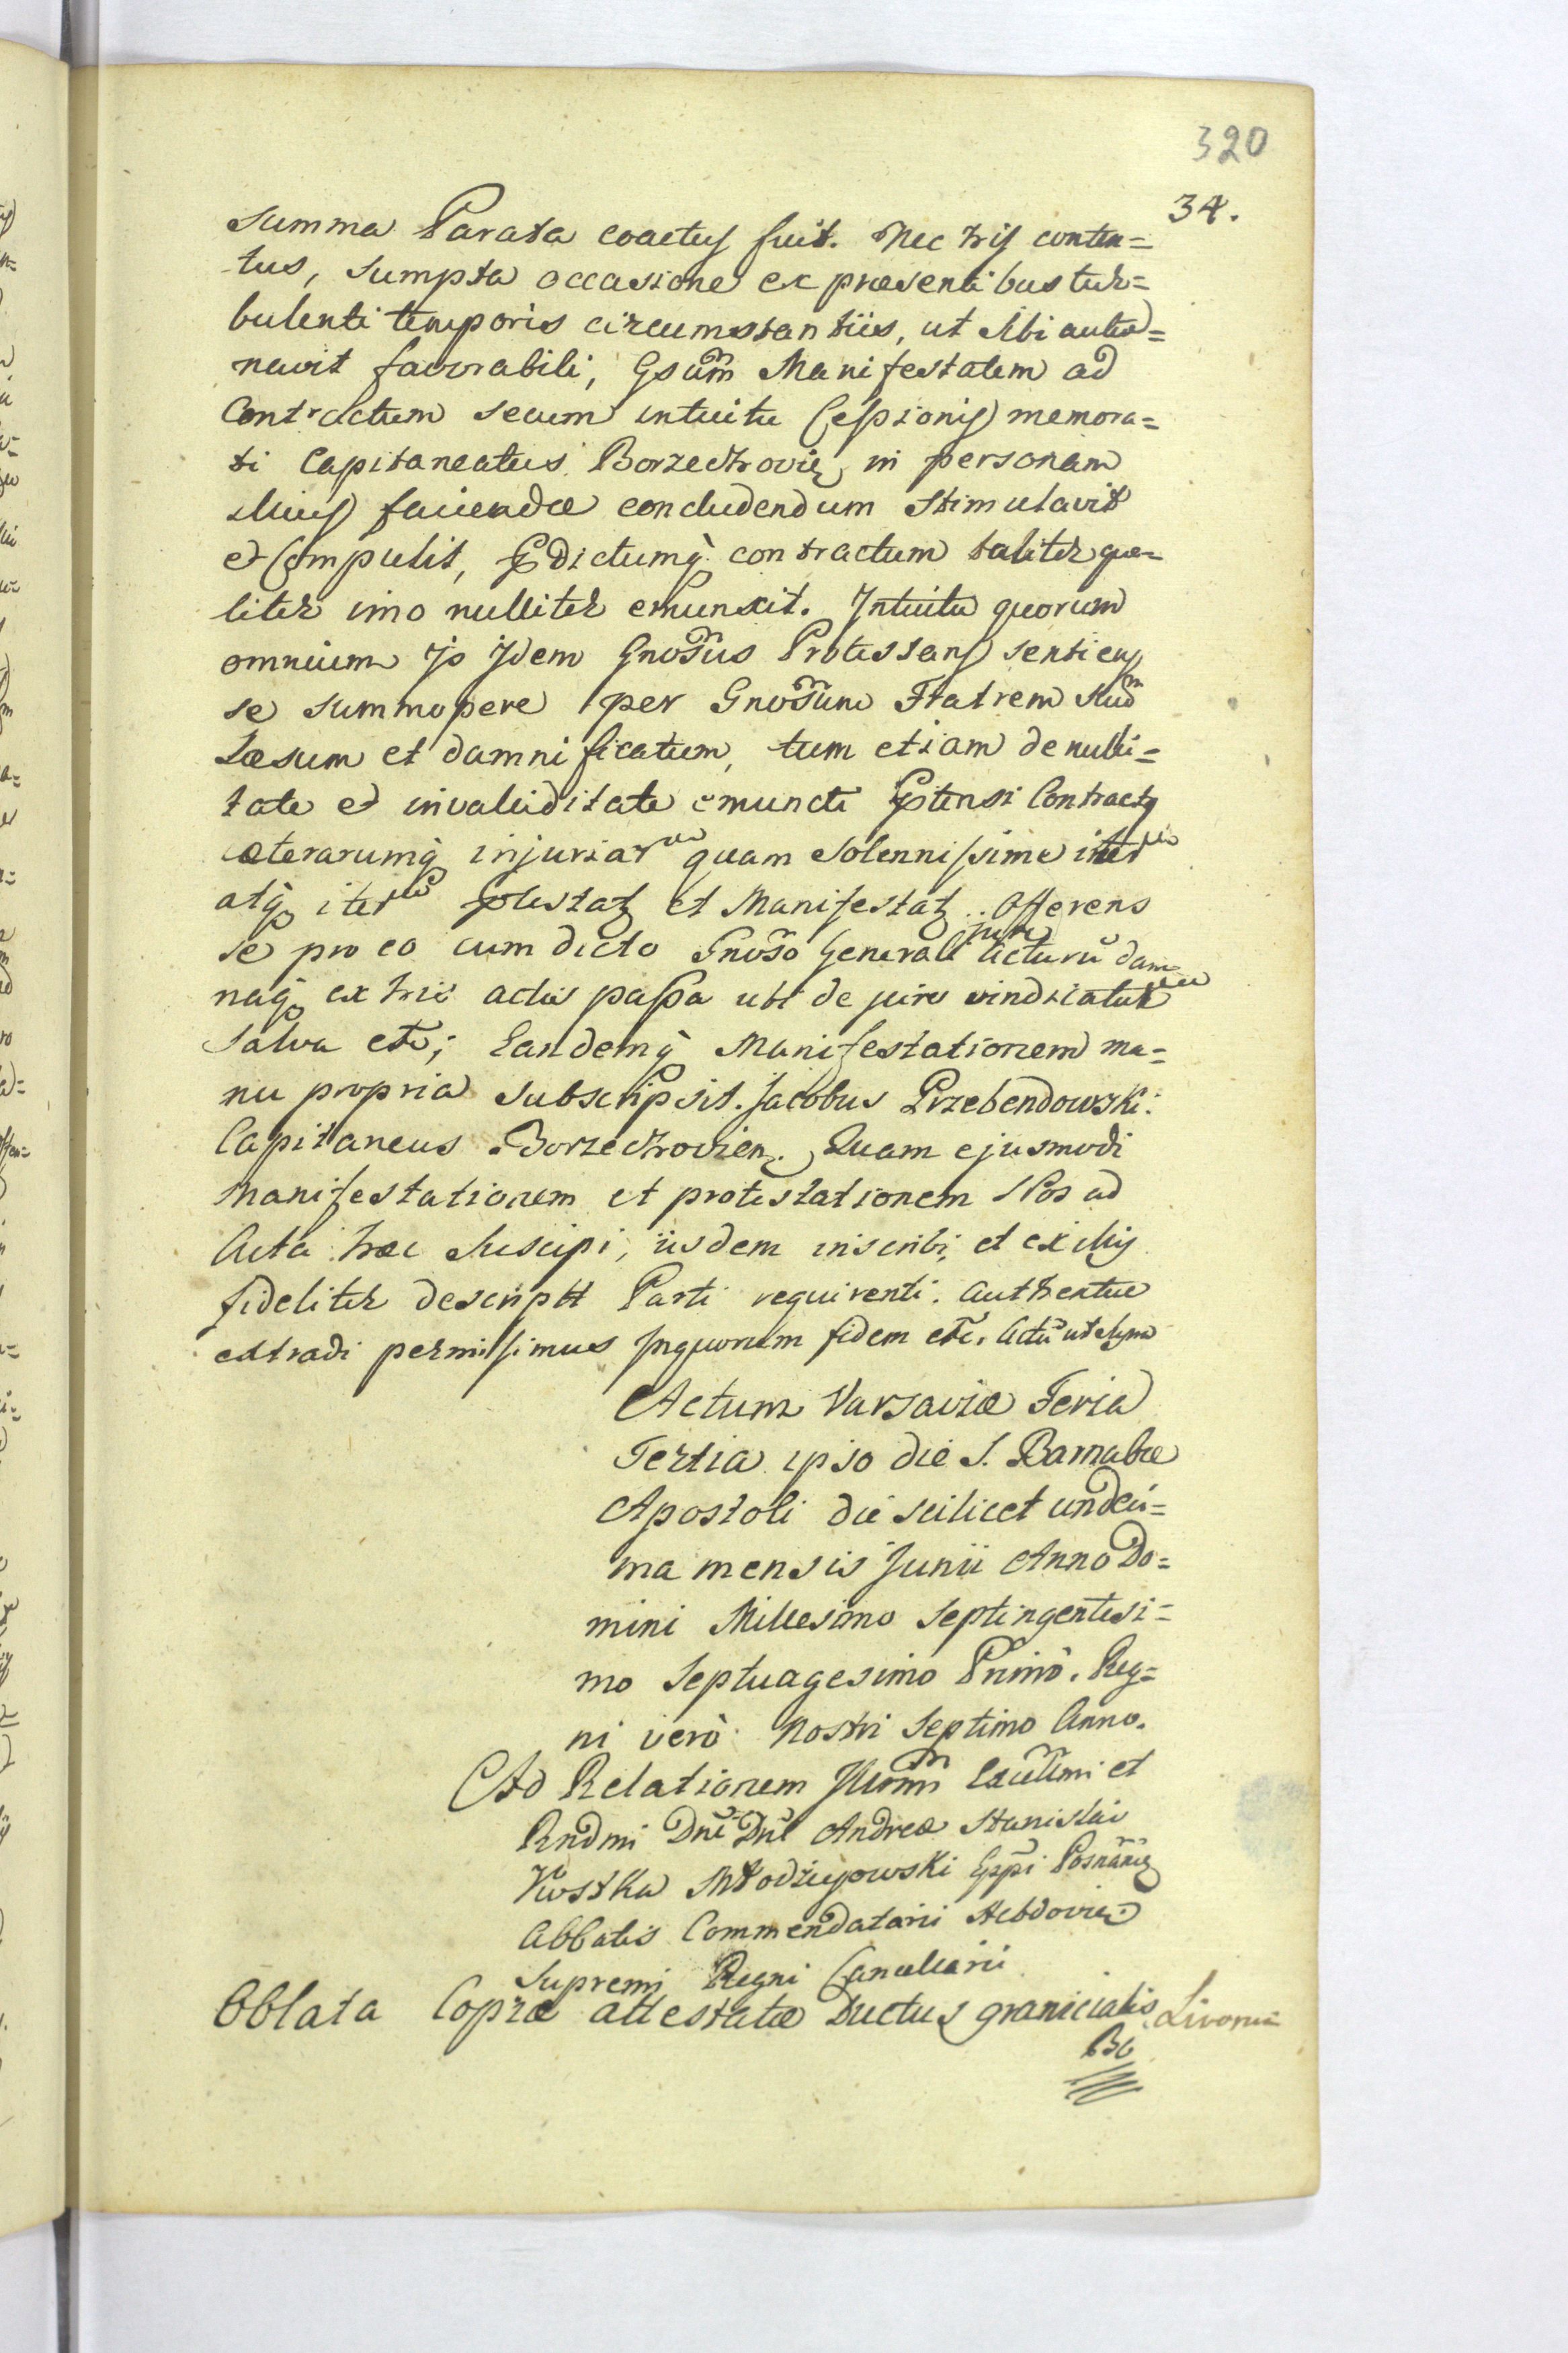 320
34.
Summa Parata coactus fuit. Nec his conten=
tus, sumpta occasione ex praesentibus tur=
bulenti temporis circumstantiis, ut sibi
favorabili, Gsũm Manifestatem ad
Contractum secum intuitu Cessionis memora=
ti Capitaneatus Borzechovien in personam
illius faciendae concludendum stimulavit
et Compulit, Pdictumq contractum taliter qua=
liter imo nulliter emunxit. Intuitu quorum
omnium Idem Gnosus Protestans sentiens
se summopere per Gnosum Fratrem suum
Laesum et damnificatum, tum etiam de nulli=
tate et invaliditate emuncti Ptensi Contractus
caeterarumq injuriarum quam solennissime iterum
atq iterum Ptestat et Manifestat. Offerens
se pro eo cum dicto Gnoso Generali jure acturũ dam
naq ex his actis passa ubi de jure vindicaturum
Salva etc; Eandemq Manifestationem ma=
nu propria subscripsit. Jacobus Przebendowski:
Capitaneus Borzechovien. Quam ejusmodi
Manifestationem et protestationem Nos ad
Acta haec suscipi, iisdem inscribi, et ex illis
fideliter descriptt Parti requirenti authentice
extradi permissimus Inquorum fidem etc. Actũ ut supra
Actum Varsaviae Feria
Tertia ipso die S. Barnabae
Apostoli die scilicet undeci=
ma mensis Junii Anno Do=
mini Millesimo Septingentesi=
mo Septuagesimo Primo. Reg=
ni verò Nostri Septimo Anno.
Ad Relationem Illũmi Excellmi et
Rndmi Dni Dni Andreae Stanislai
Kostka Młodziejowski Eppi Posnanien
Abbatis Commendatarii Hebdovien
Supremi Regni Cancellarii
Oblata Copiae attestatae Ductus granicialis Livoniae